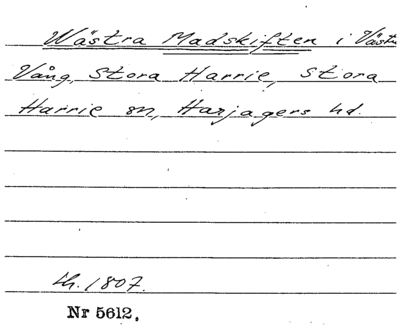 Wästra Madskiften i Västra
Vång, Stora Harrie, Stora
Harrie sn, Harjagers hd.
Lh. 1807.
Nr 5612.